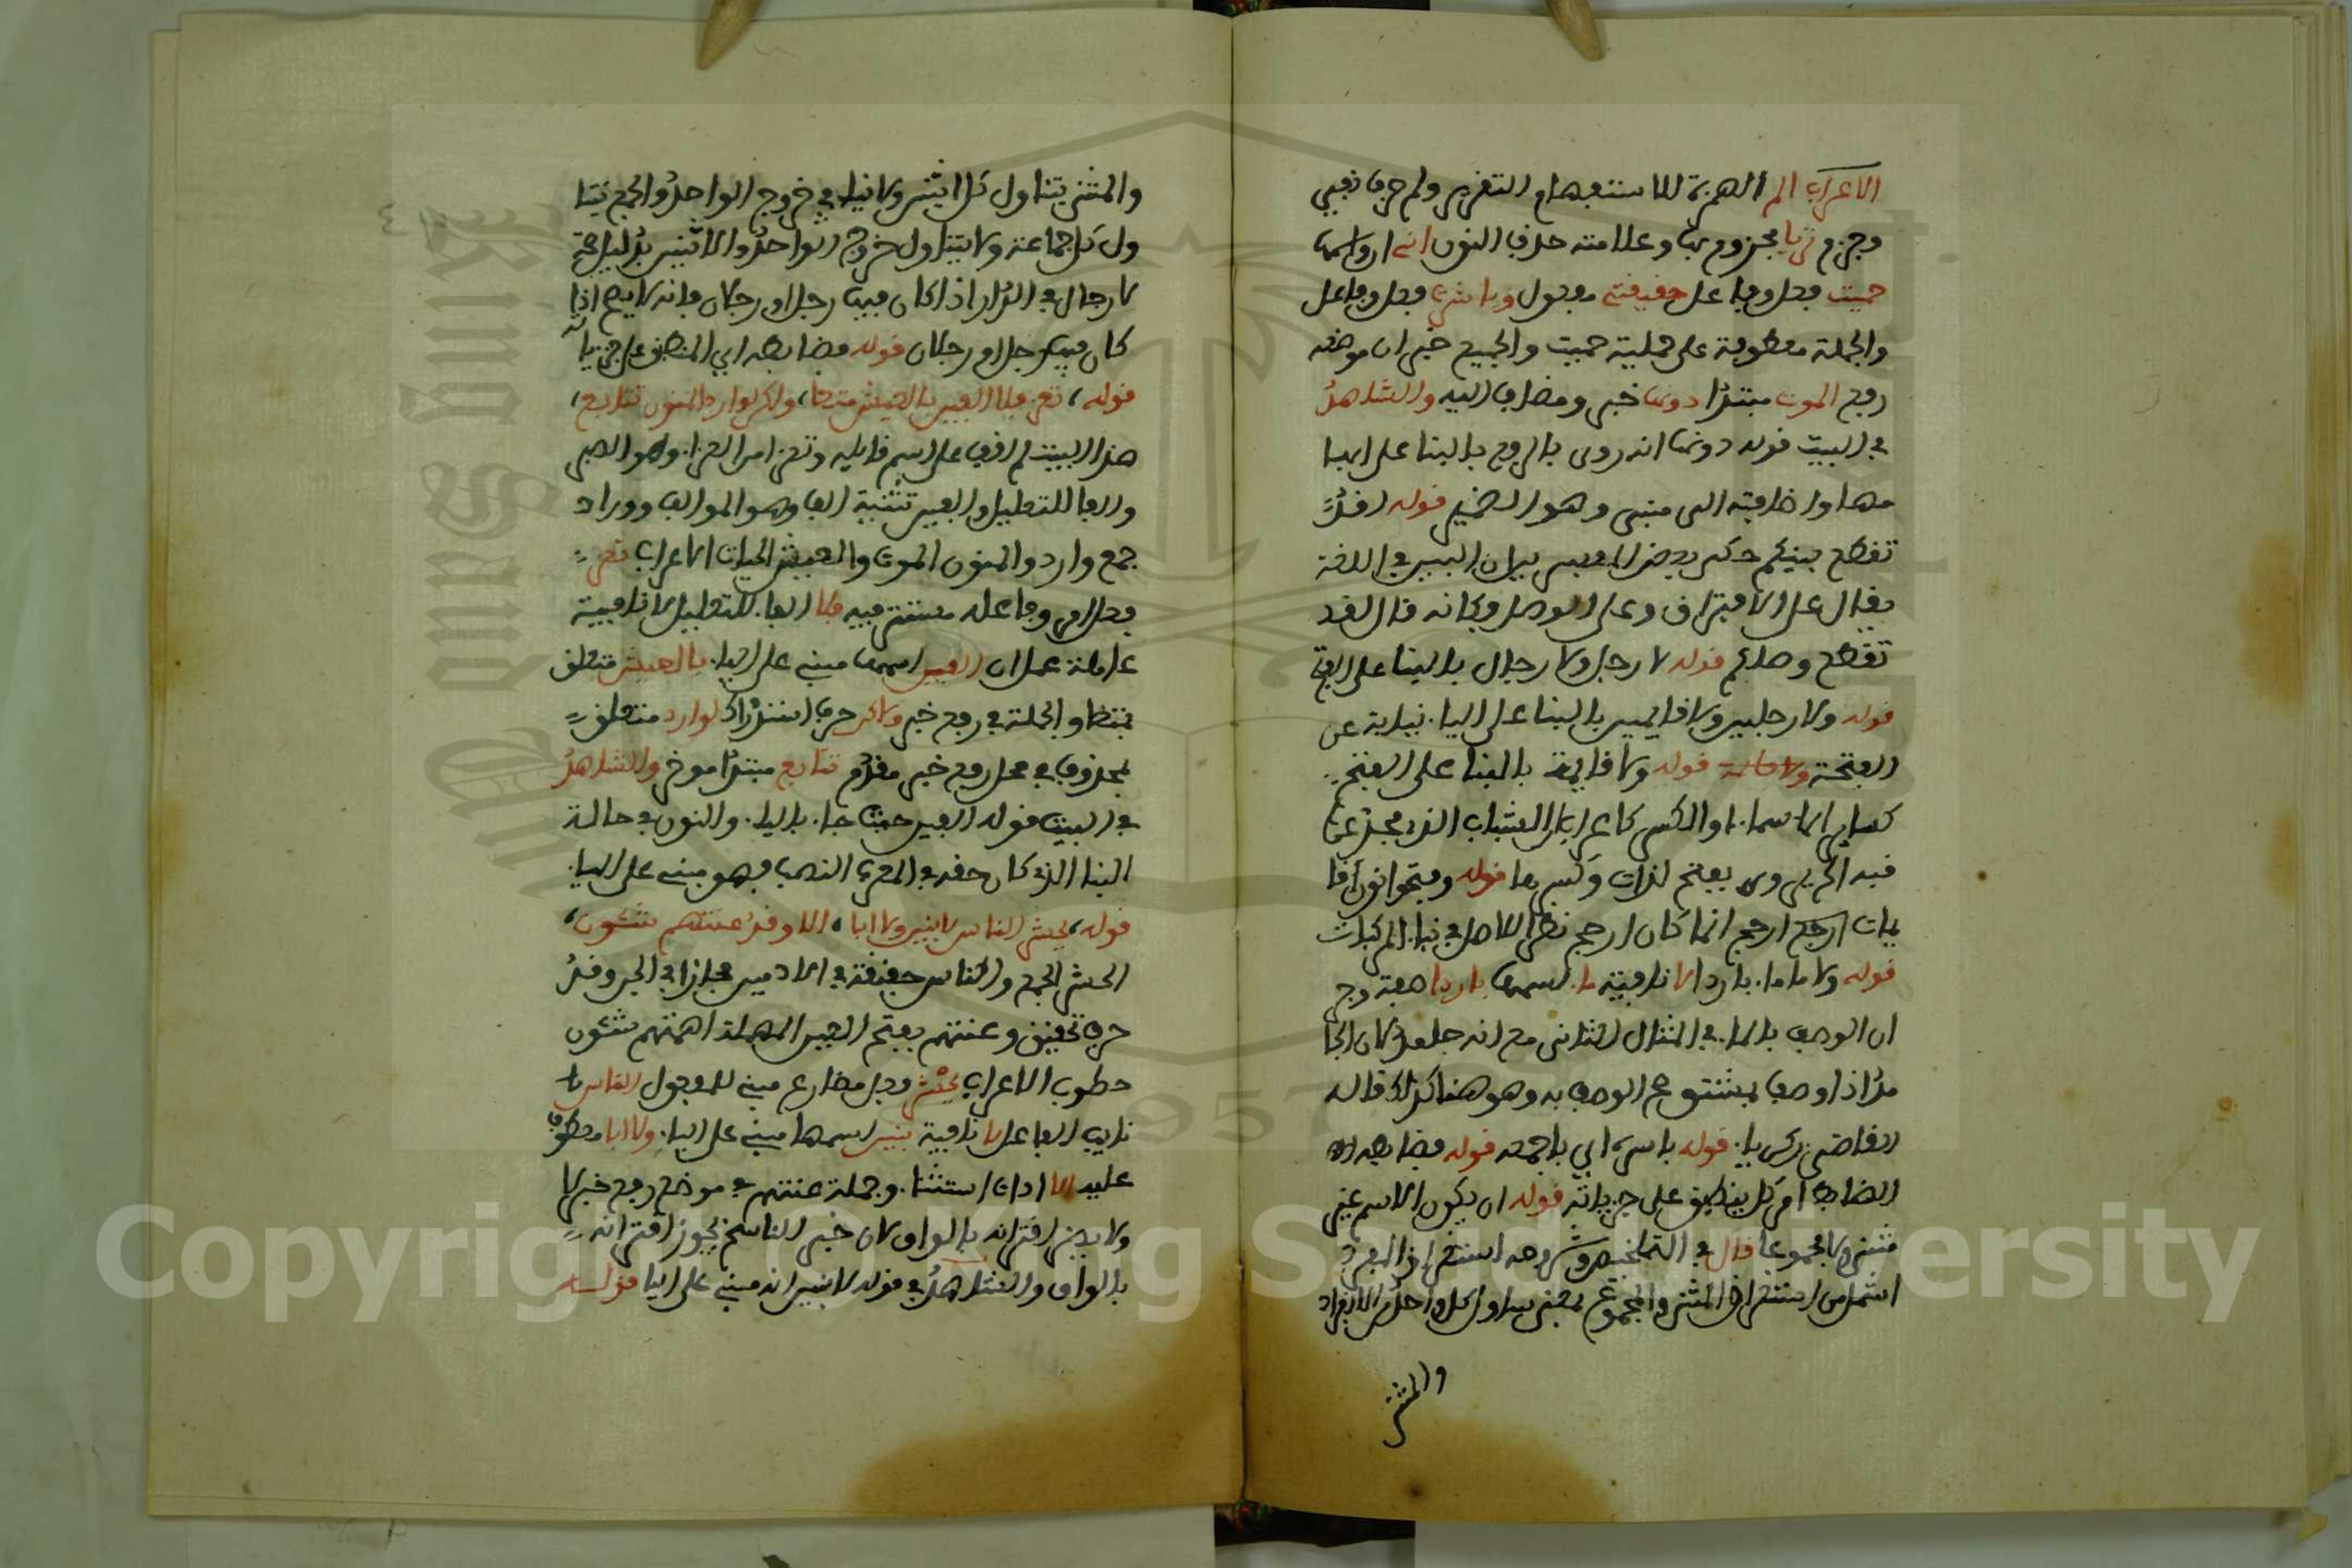 الاعراب الم الهمزة للاستفهام التقرير ولم حرف نفي
وجزم تريا مجزوم بها وعلامته حذف النون اني ان واسمها
حميت فعل وفاعل حقيقتي مفعول وباشرت فعل وفاعل
والجملة معطوفة على جملية حميت والجميع خبر ان موضعه
رفع الموت مبتدا دونها خبر ومضاف اليه والشاهد
في البيت قوله دونها انه روى بالرفع بالبنا على ابها
مها واضافته الى مبني وهو الضمير قوله لقد
تقطع بينكم ذكر بعض المفسرين ان البين في اللغة
يقال على الافتراق وعلى الوصل وكانه قال لقد
تقطع وصلكم قوله لا رجل ولا رجال بالبنا على الفتح
قوله ولا رجلين ولا قايمين بالبنا على اليا نيابة عن
الفتحة قوله ولا قايمة بالبنا على الفتح
كساير الاسماء او الكسر كاعراب ان الشباب الذي مجد عواقبه
فيه الحريرى وى بفتح لذات وكسرها قوله وفتحوا نون قا
يمات ارجح ارجح انما كان ارجح نظرا للاصل في بنا المركبات
قوله ولا ما ما باردا لا نافية ما اسمها باردا صفة وج
ان الوصف بالما في المثال الثاني مع انه جامد لان الجا
مد اذا وصف بمشتق صح الوصف به وهو هنا كذلك قاله
القاضي زكريا قوله باسره اي باجمعه قوله فضابطه
الضابط امر كلي ينطبق على جزيياته قوله ان يكون الاسم غير
مثنى ولا مجموعا قال في التلخيص وشرحه استغراق المفرد
اشمل من استغراق المثنى والمجموع بمعنى يتناول كل واحد من الافراد
والمثنى
والمثنى يتناول كل اثنين ولا ينافي خروج الواحد والجمع يتنا
ول كل جماعة ولا يتناول خروج الواحد والاثنين بدليل صحة
لا رجال في الدار اذا كان فيها رجل او رجلان فانه لا يصح اذا
كان فيها رجل او رجلان قوله فضابطه اي المنطبق على جزيياته
قوله، تعز فلا الفين بالعيش متعا، ولكن لوارد المنون تتابع،
هذا البيت لم اقف على اسم قايله وتعز امر العزا وهو الصبر
والفا للتعليل والفين تثنية الف وهو الموالف ووراد
جمع وارد والمنون الموت والعيش الحيات الاعراب تعز
فعل امر وفاعله مستتر فيه فلا الفا للتعليل لا نافية
عاملة عمل ان الفين اسمها مبني على اليا بالعيش متعلق
بمتعا والجملة في رفع خبر ولاكن حرف استدراك لوارد متعلق
بمحذوف في محل رفع خبر مقدم تتابع مبتدا موخر والشاهد
في البيت قوله الفين حيث جا باليا والنون في حالة
البنا الذي كان حقه في المعرب النصب فهو مبني على اليا
قوله، يحشر الناس لا بنين ولا ابا، الا وقد عنتهم شئون،
الحشر الجمع والناس حقيقة في الادميين مجازا في الجن وقد
حرف تحقيق وعنتهم بفتح العين المهملة اهمتهم شئون
خطوب الاعراب يحشر فعل مضارع مبني للمفعول الناس
نايب الفاعل لا نافية بنين اسمها مبني على اليا ولا ابا معطوف
عليه الا ادات استثنا وجملة عنتهم في موضع رفع خبر لا
ولا يضر اقترانه بالواو لان خبر الناسخ يجوز اقترانه
بالواو والشاهد في قوله لا بنين انه مبني على اليا قوله